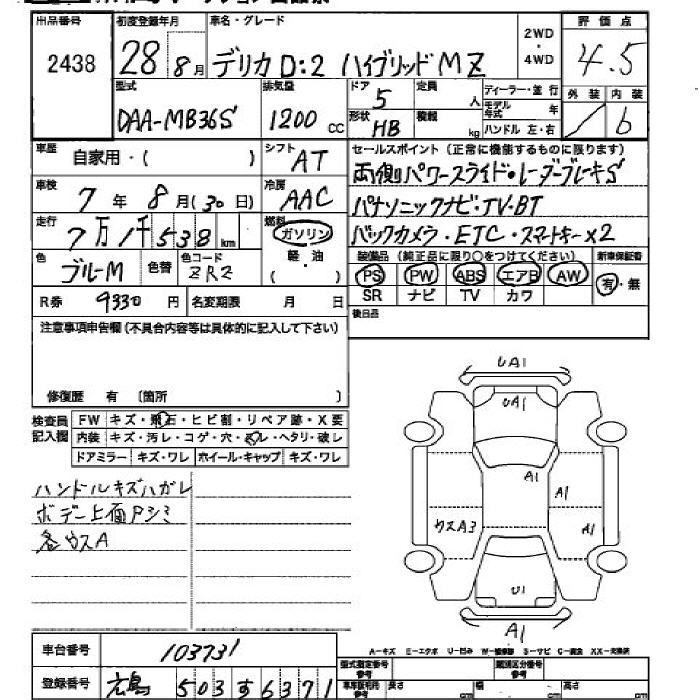 出品番号 初度登録年月 車名・グレード 2WD・4WD 評価点
2438 28 8月 デリカD:2 ハイブリッドMZ 4.5
型式 排気量 ドア 定員 ディーラー・並行 外装 内装
DAA-MB36S 1200 CC 5 人 モデル年式 年 / b
形状 HB 積載 kg ハンドル 左・右
車歴 自家用・( ) シフト AT セールスポイント(正常に機能するものに限ります)
両側パワースライド・レーダーブレーキS
車検 7年 8月(30日) 冷房 AAC パナソニックナビ:TV・BT
走行 7万1千538km 燃料 ガソリン バックカメラ・ETC・スマートキー×2
軽・油
( )
色 ブルーM 色替 色コード ZRZ 装備品(純正品に限り○をつけてください) 新車保証書
PS PW ABS エアB AW 有・無
R券 9330円 名変期限 月 日 SR ナビ TV カワ
注意事項申告欄(不具合内容等は具体的に記入して下さい) 後日品
修復歴 有 〔箇所 〕
検査員記入欄 FW キズ・飛石・ヒビ割・リペア跡・X要
内装 キズ・汚レ・コゲ・穴・スレ・ヘタリ・破レ
ドアミラー キズ・ワレ ホイール・キャップ キズ・ワレ
ハンドルキズハガレ
ボデー上面Pシミ
各ウスA
UA1
UA1
A1
A1
ウスA3
A1
U1
A1
A-キズ E-エクボ U-凹み W-補修跡 S-サビ C-腐食 XX-交換済
車台番号 103731 型式指定番号 参考 類別区分番号 参考
登録番号 広島 503 す 6371 車庫証明用 参考 長さ cm 幅 cm 高さ cm